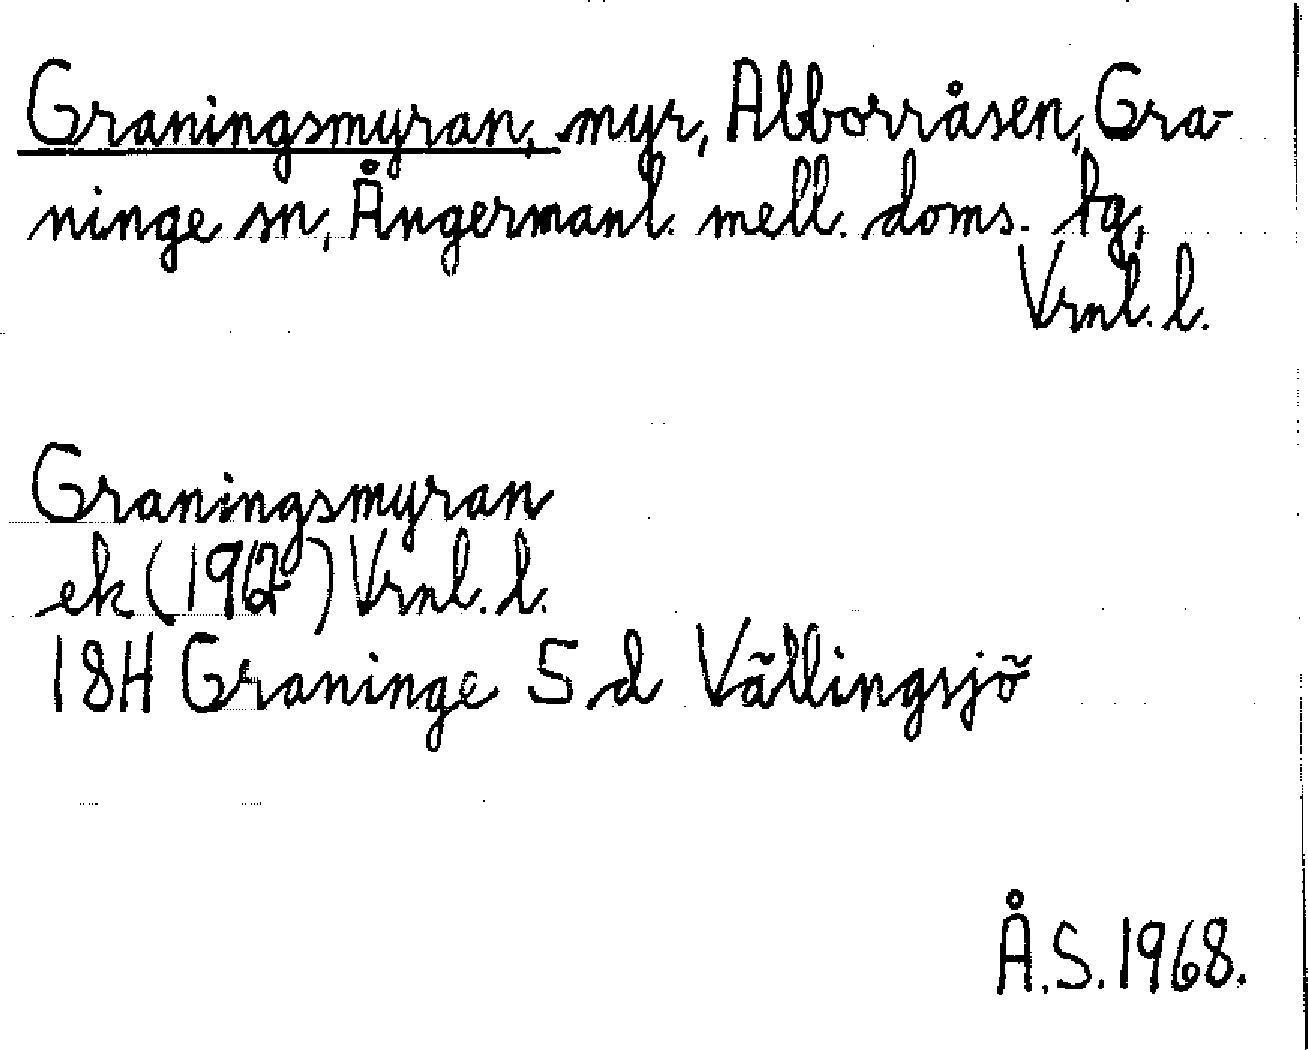 Graningsmyran, myr, Alborråsen, Gra-
ninge sn, Ångermanl. mell. doms. tg,
Vrnl. l.
Graningsmyran
ek (1962) Vrnl. l.
18H Graninge S d Vällingsjö
Å.S. 1968.